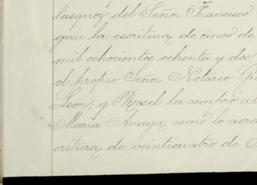 lasquez del Señor Francisco
gun la escritura de cinco de
mil ochocientos ochenta y dos,
el propio Señor Notario
Leon; y Roxel la compró a
Maria Anaya como lo acre
critura de veinticuatro de